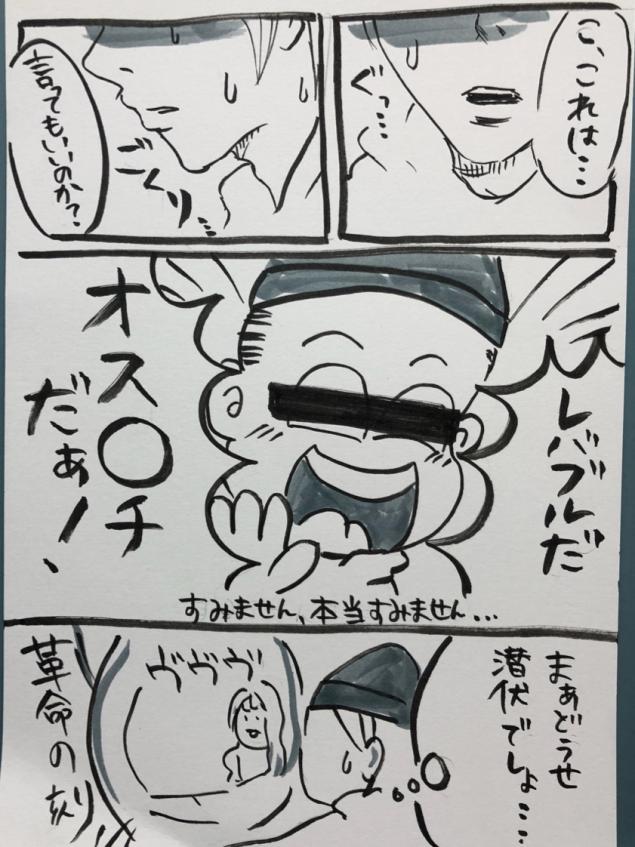 こ、これは…
ぐっ…
ごくり…
言ってもいいのか？
レバブルだ
オス〇チ
だぁー！、
すみません、本当すみません…
まぁどうせ
潜伏でしょ…
ヴヴヴ
革命の刻